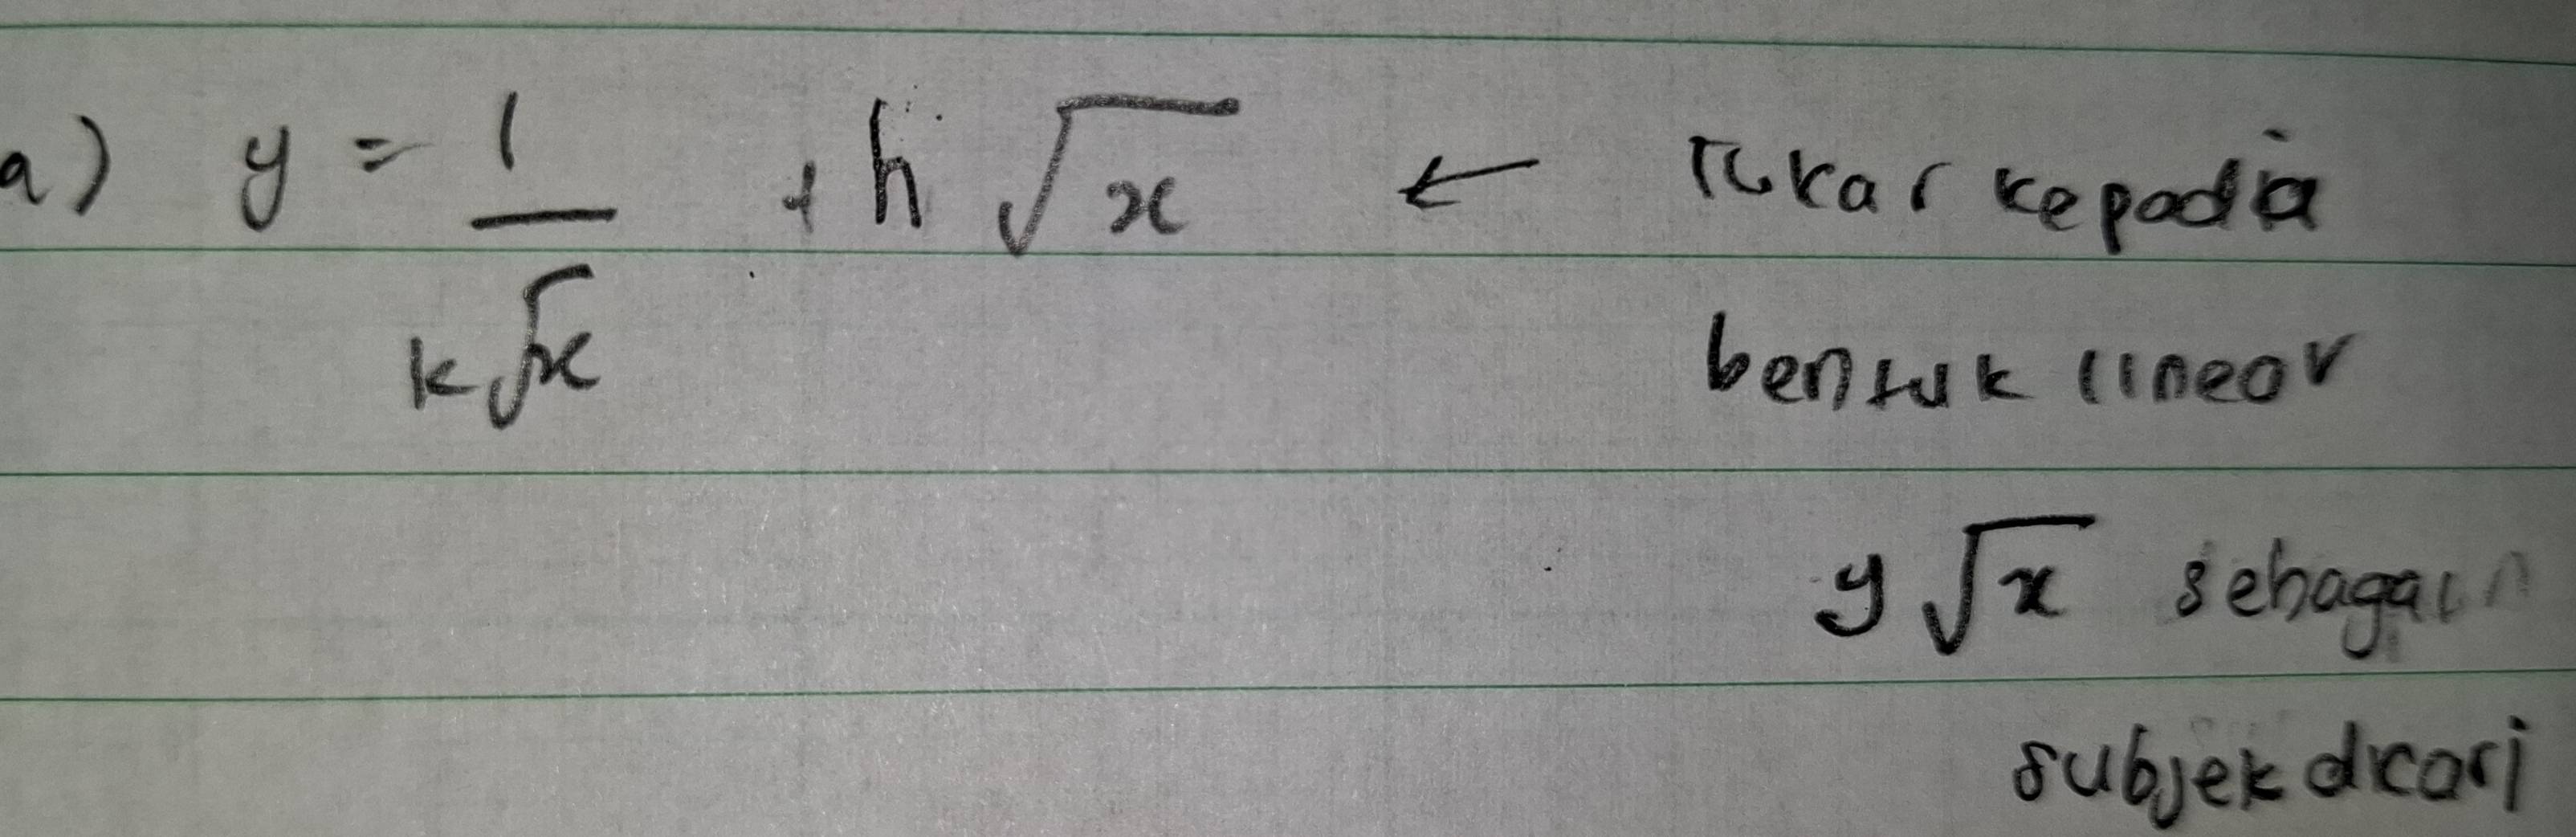 a) y = 1/(k√x) + h √x ← Tukar kepada
bentuk linear
y √x sebagai
subjek dicari